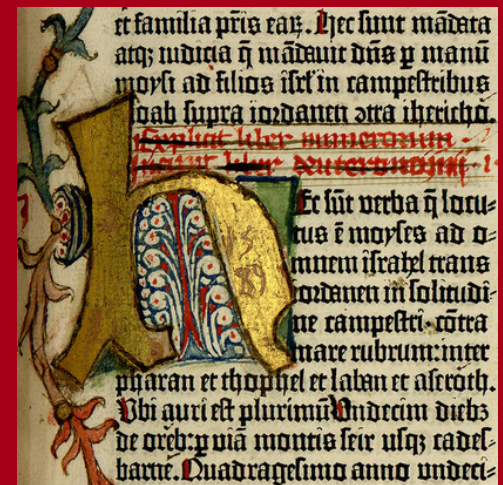 et familia pr̄is eaꝝ. Hec sunt mādata
atqꝫ iudicia q̄ mādauit dn̄s ꝑ manū
moysi ad filios isrl̄ in campestribus
moab supra iordanen ɔtra ihericho.
Explicit liber numerorum
Incipit liber deuteronomij
Hec sūt verba q̄ locu⸗
tus ē moyses ad o⸗
mnem israhel trans
iordanen in solitudi⸗
ne campestri· cōtra
mare rubrum: inter
15
89
pharan et thophel et laban et aseroth.
Vbi auri est plurimū Vndecim diebꝫ
de oreb: ꝑ uiā montis seir usqꝫ cades⸗
barne. Quadragesimo anno undeci⸗